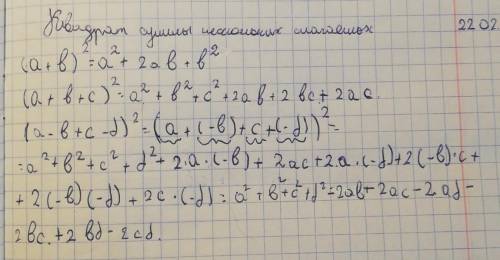 Квадрат суммы нескольких слагаемых 22 02
(a+b)² = a² + 2ab + b²
(a+b+c)² = a² + b² + c² + 2ab + 2bc + 2ac.
(a-b+c-d)² = (a+(-b)+c+(-d))² =
= a² + b² + c² + d² + 2·a·(-b) + 2ac + 2·a·(-d) + 2(-b)·c +
+ 2(-b)(-d) + 2c·(-d) = a² + b² + c² + d² - 2ab + 2ac - 2ad -
2bc. + 2bd - 2cd.